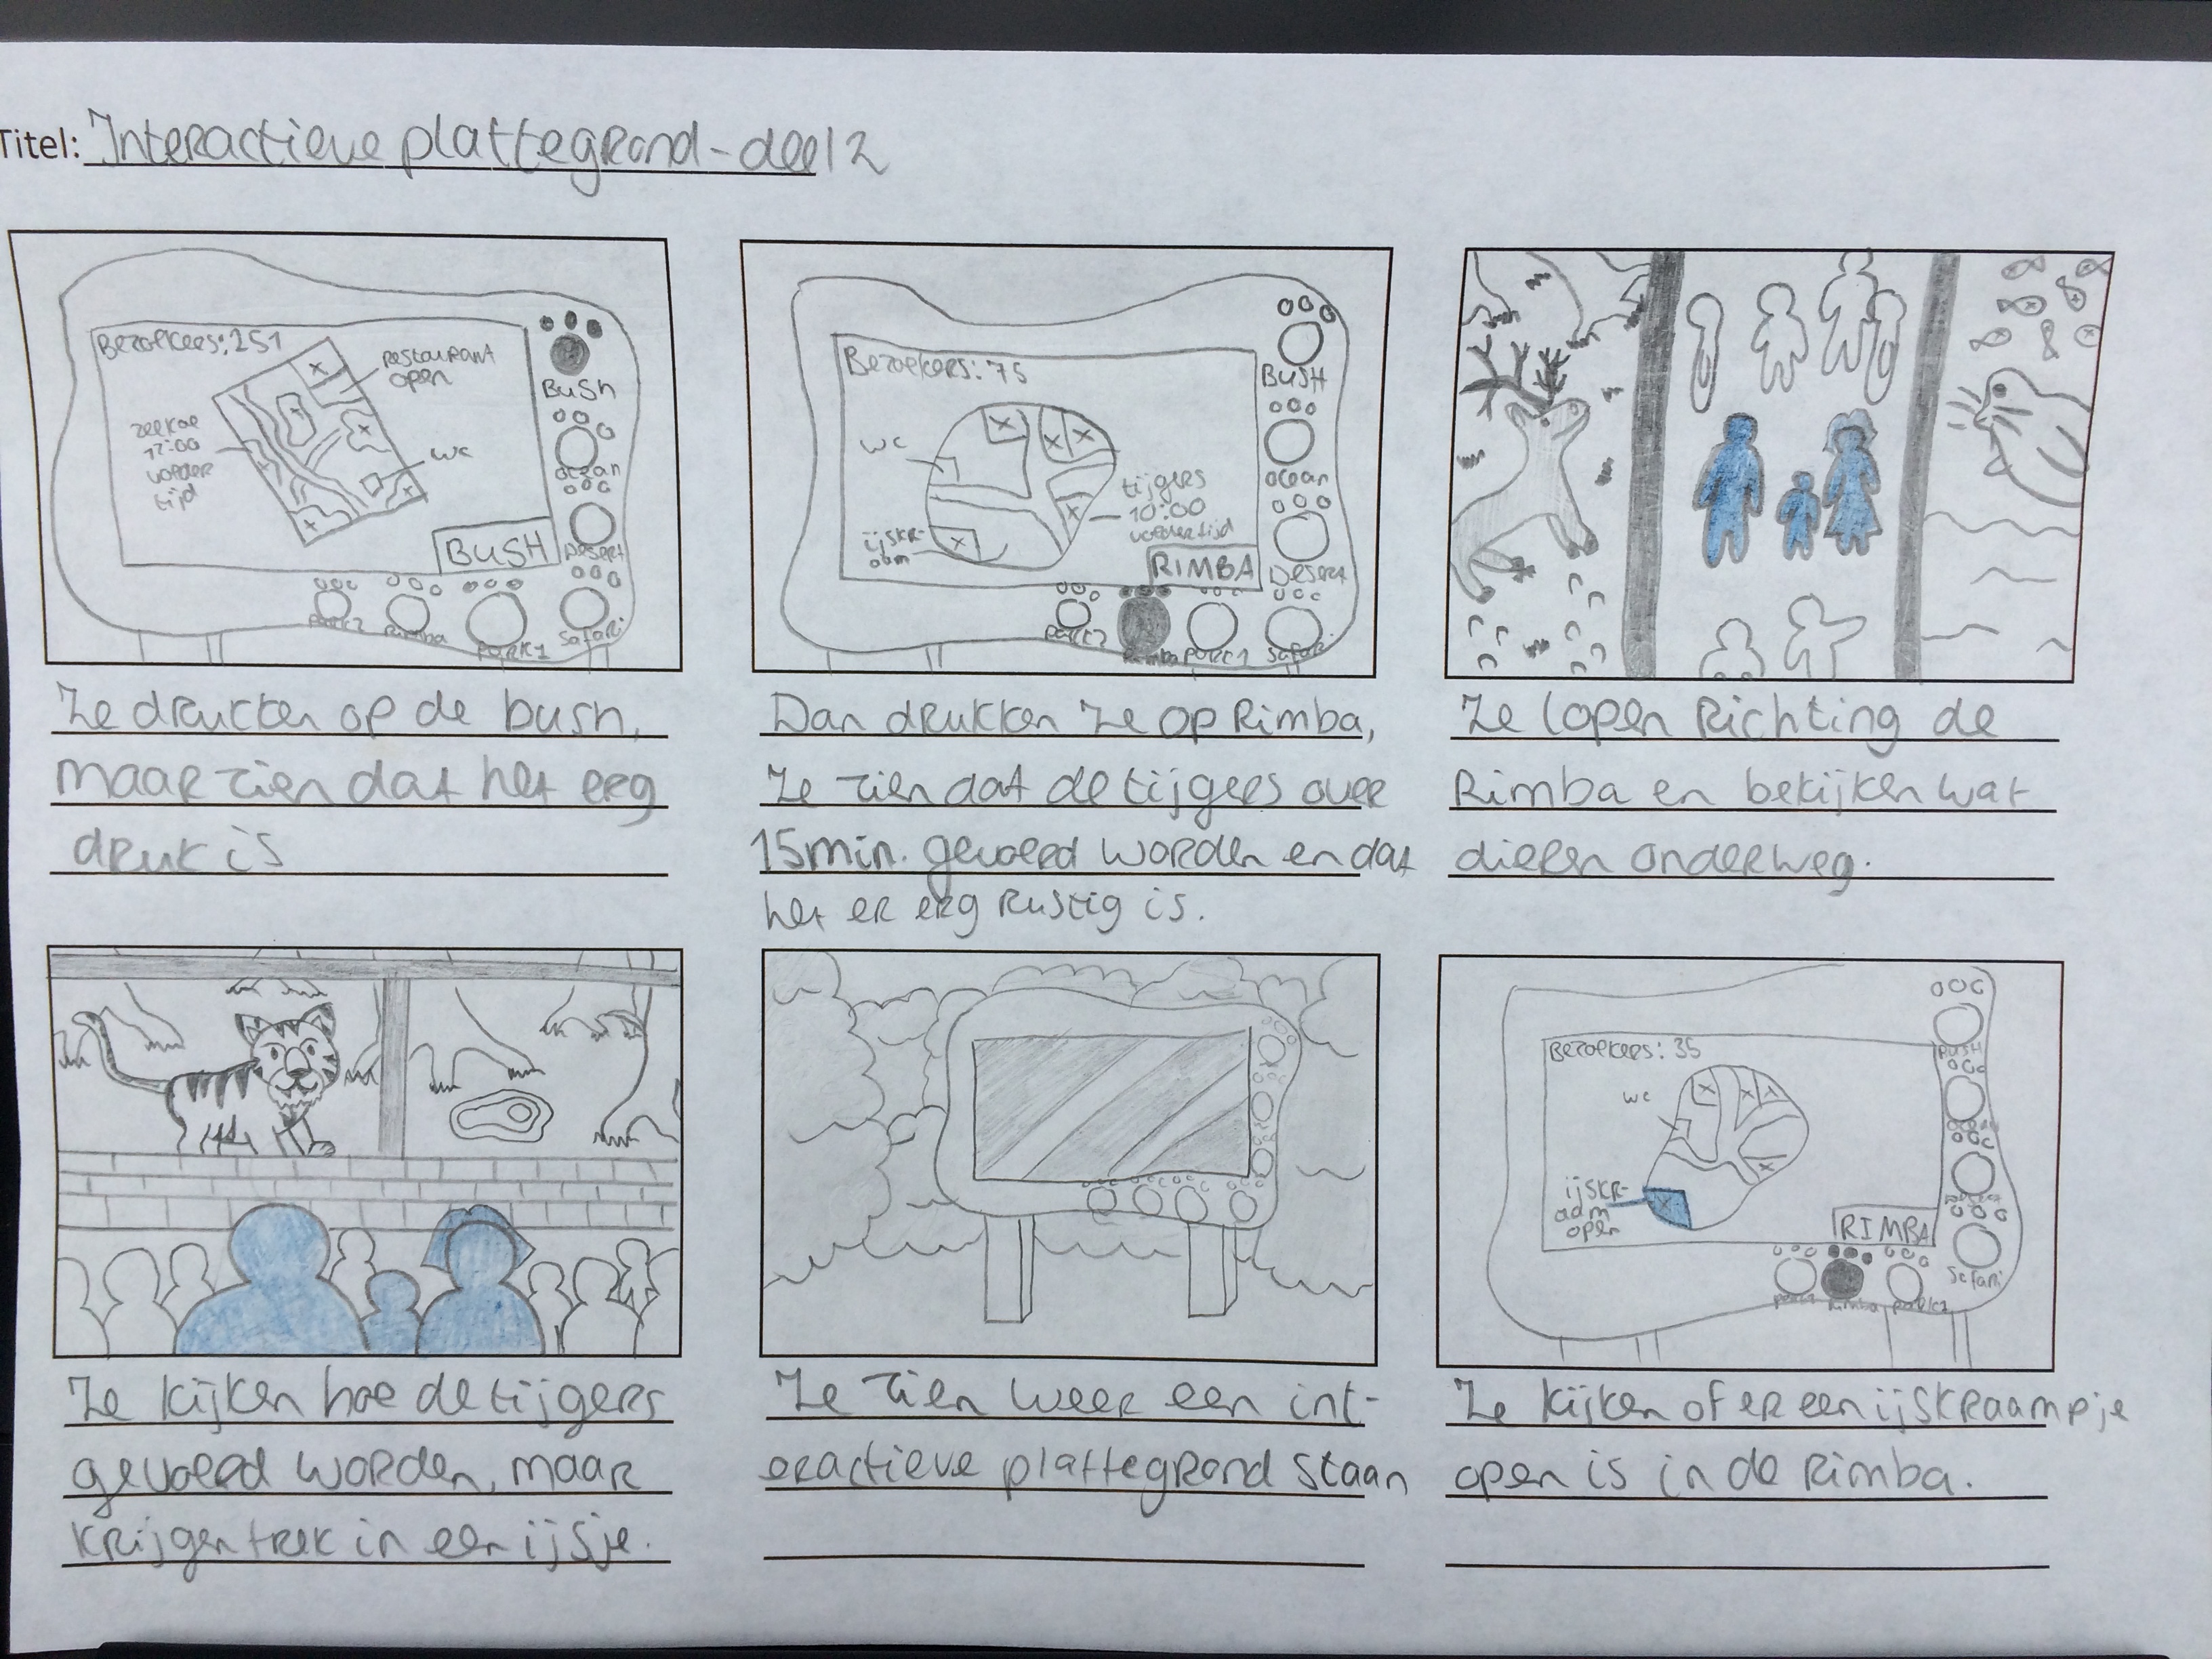 Titel: Interactieve plattegrond - deel 2
Bezoekers: 251
restaurant
open
zeekoe
17:00
voeder
tijd
wc
BUSH
Bush
Ocean
Desert
Safari
Park1
Rimba
Park2
Ze drukken op de bush,
maar zien dat het erg
druk is
Bezoekers: 75
wc
tijgers
10:00
voedertijd
ijskr-
aam
RIMBA
BUSH
Ocean
Desert
Safari
Park1
Rimba
Park2
Dan drukken ze op Rimba,
Ze zien dat de tijgers over
15min. gevoerd worden en dat
het er erg rustig is.
Ze lopen richting de
Rimba en bekijken wat
dieren onderweg.
Ze kijken hoe de tijgers
gevoerd worden, maar
krijgen trek in een ijsje.
Ze zien weer een int-
eractieve plattegrond staan
Bezoekers: 35
wc
ijskr-
aam
open
RIMBA
BUSH
Safari
Rimba
Ze kijken of er een ijskraampje
open is in de Rimba.